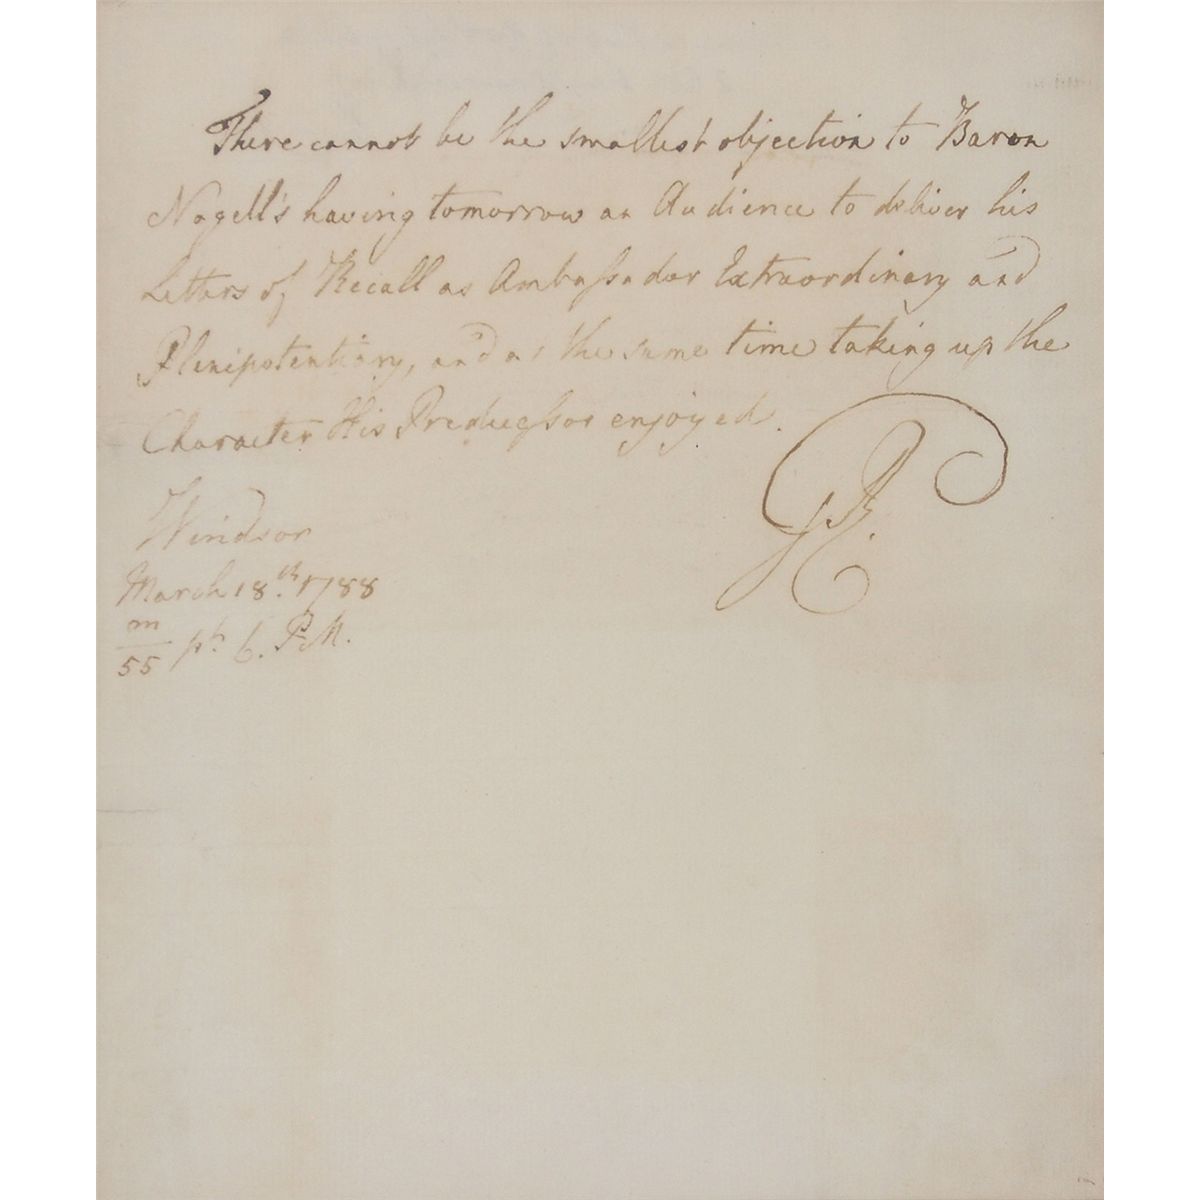 There cannot be the smallest objection to Baron
Nagell's having tomorrow an Audience to deliver his
Letters of Recall as Ambassador Extraordinary and
Plenipotentiary, and at the same time taking up the
Character His Predecessor enjoyed.
GR.
Windsor
March 18.th 1788
m/55 pt. 6. P.M.